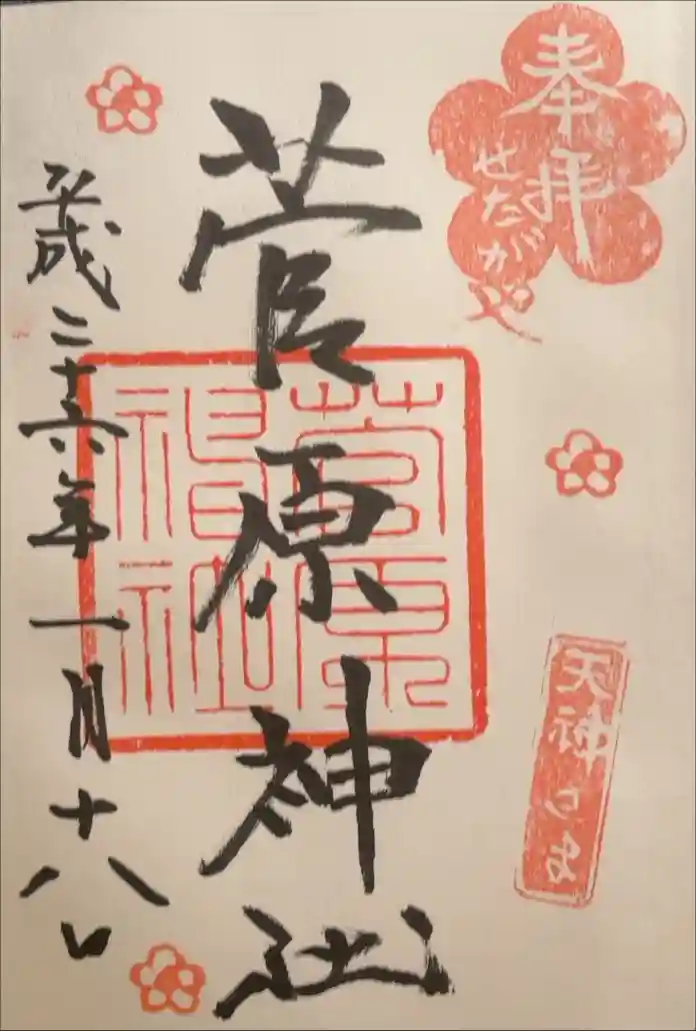 奉拝
せたがや
天神
菅原神社
菅原神社
平成二十六年一月十八日